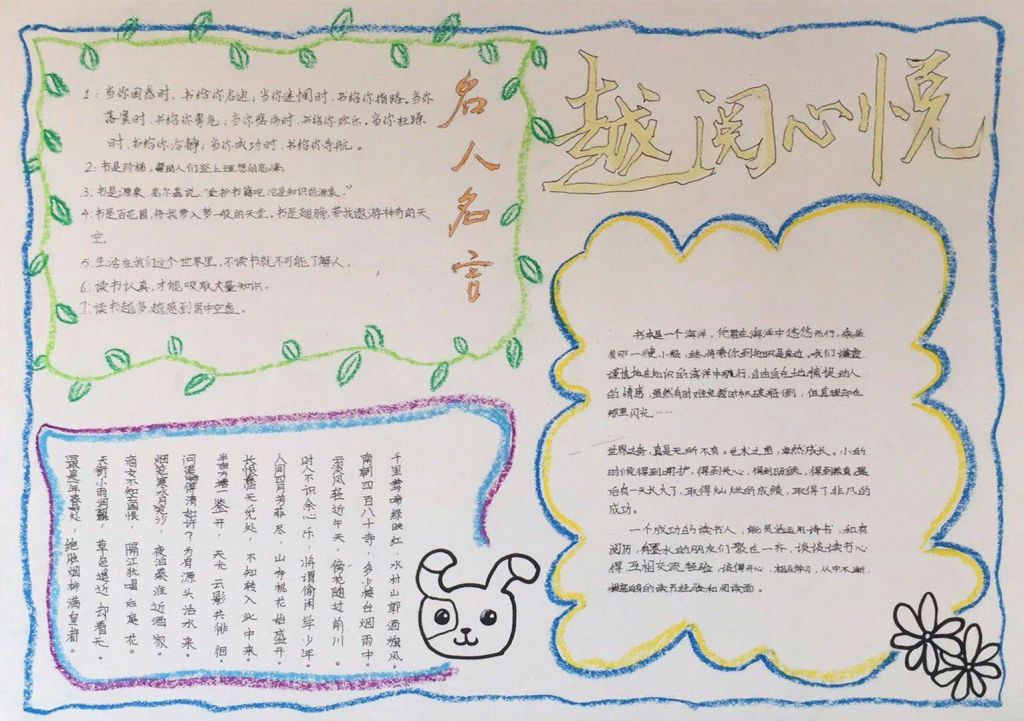 越阅心悦
名人名言
1：当你困惑时、书给你启迪；当你迷惘时，书给你指路。当你
落寞时，书给你勇气；当你悲伤时，书给你欢乐。当你狂躁
时，书给你冷静；当你成功时，书给你导航。
2：书是阶梯，帮助人们登上理想的高峰
3：书是源泉，高尔基说，“爱护书籍吧，它是知识的源泉。”
4：书是百花园，将我带入梦一般的天堂。书是翅膀，带我遨游神奇的天
空。
5：生活在我们这个世界里，不读书就不可能了解人。
6：读书认真，才能吸取大量知识。
7：读书越多，越感到腹中空虚。
千里莺啼绿映红，水村山郭酒旗风。
南朝四百八十寺，多少楼台烟雨中。
云淡风轻近午天，傍花随柳过前川。
时人不识余心乐，将谓偷闲学少年。
人间四月芳菲尽，山寺桃花始盛开。
长恨春归无觅处，不知转入此中来。
半亩方塘一鉴开，天光云影共徘徊。
问渠那得清如许？为有源头活水来。
烟笼寒水月笼沙，夜泊秦淮近酒家。
商女不知亡国恨，隔江犹唱后庭花。
天街小雨润如酥，草色遥近却看无。
最是一年春好处，绝胜烟柳满皇都。
书本是一个海洋，你若在海洋中悠悠而行，乘坐
着那一艘小船，终将带你到知识是岸边。我们谦虚
谨慎地在知识的海洋中航行，自由自在地捕捉动人
的情感，虽然有时难免暂时帆破船倒，但真理却在
那里闪光……
世界之奇，真是无所不有。也木之苗，卓然成长。小的
时候得到拥护，得到关心，得到阳光，得到教育，最
后有一天长大了，取得灿烂的成绩，取得了非凡的
成功。
一个成功的读书人，能灵活运用诗书，和有
阅历，有墨水的朋友们聚在一齐，谈谈读书心
得，互相交流经验，谈得开心，相互学习，从中不断
的读书经验和阅读面。